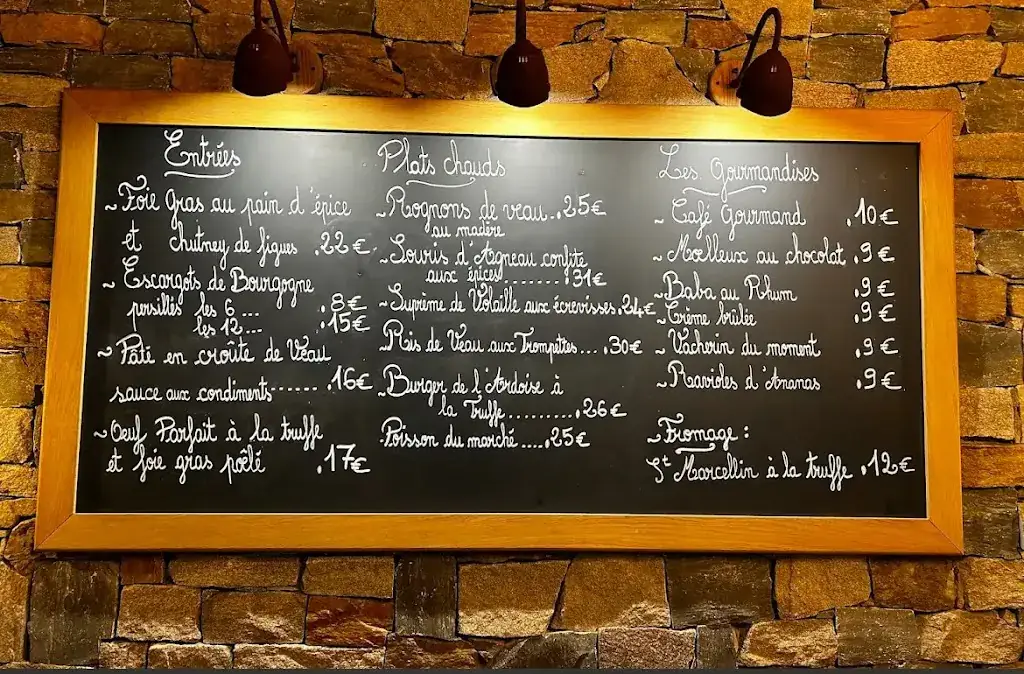 Entrées
~ Foie Gras au pain d'épice
et chutney de figues .22€
~ Escargots de Bourgogne
persillés les 6 ... .8€
les 12... .15€
~ Pâté en croûte de Veau
sauce aux condiments...... .16€
~ Oeuf Parfait à la truffe
et foie gras poêlé .17€
Plats chauds
~ Rognons de veau..25€
au madère
~ Souris d'Agneau confite
aux épices ........31€
~ Suprême de Volaille aux écrevisses.24€
~ Ris de Veau aux Trompettes... .30€
~ Burger de l'Ardoise à
la Truffe..........26€
~ Poisson du marché .....25€
Les Gourmandises
~ Café Gourmand .10€
~ Moelleux au chocolat .9€
~ Baba au Rhum .9€
~ Crème brûlée .9€
~ Vacherin du moment .9€
~ Ravioles d'Ananas .9€
~ Fromage :
St Marcellin à la truffe .12€